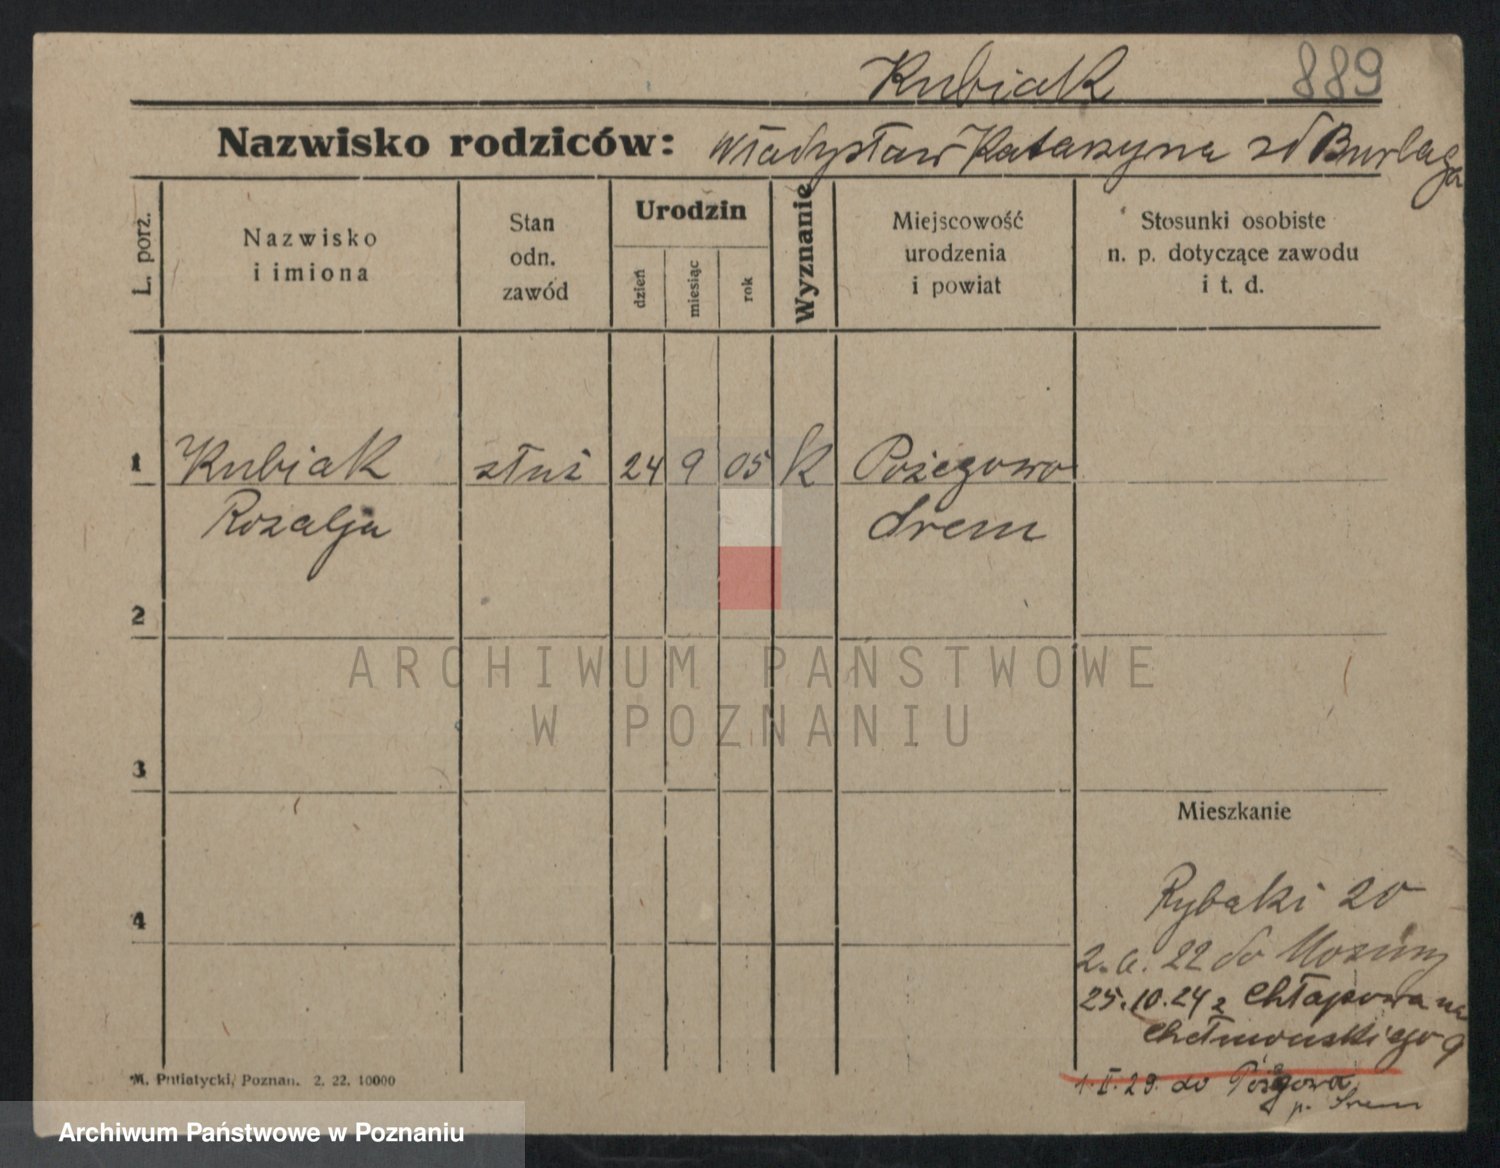 Kubiak 889
Nazwisko rodziców: Władysław Katarzyna zd Burlaga
L. porz.
Nazwisko
i imiona
Stan
odn.
zawód
Urodzin
dzień
miesiąc
rok
Wyznanie
Miejscowość
urodzenia
i powiat
Stosunki osobiste
n. p. dotyczące zawodu
i t. d.
1 Kubiak służ 24 9 05 k Pożegowo
Rozalja Srem
2
ARCHIWUM PAŃSTWOWE
W POZNANIU
3
Mieszkanie
4
Rybaki 20
22 do
25.10.24 z Chłapowa na
Chełmońskiego 9
1.II.29. do Pożegowa
p. Srem
M. Putiatycki, Poznan. 2. 22. 10000
Archiwum Państwowe w Poznaniu